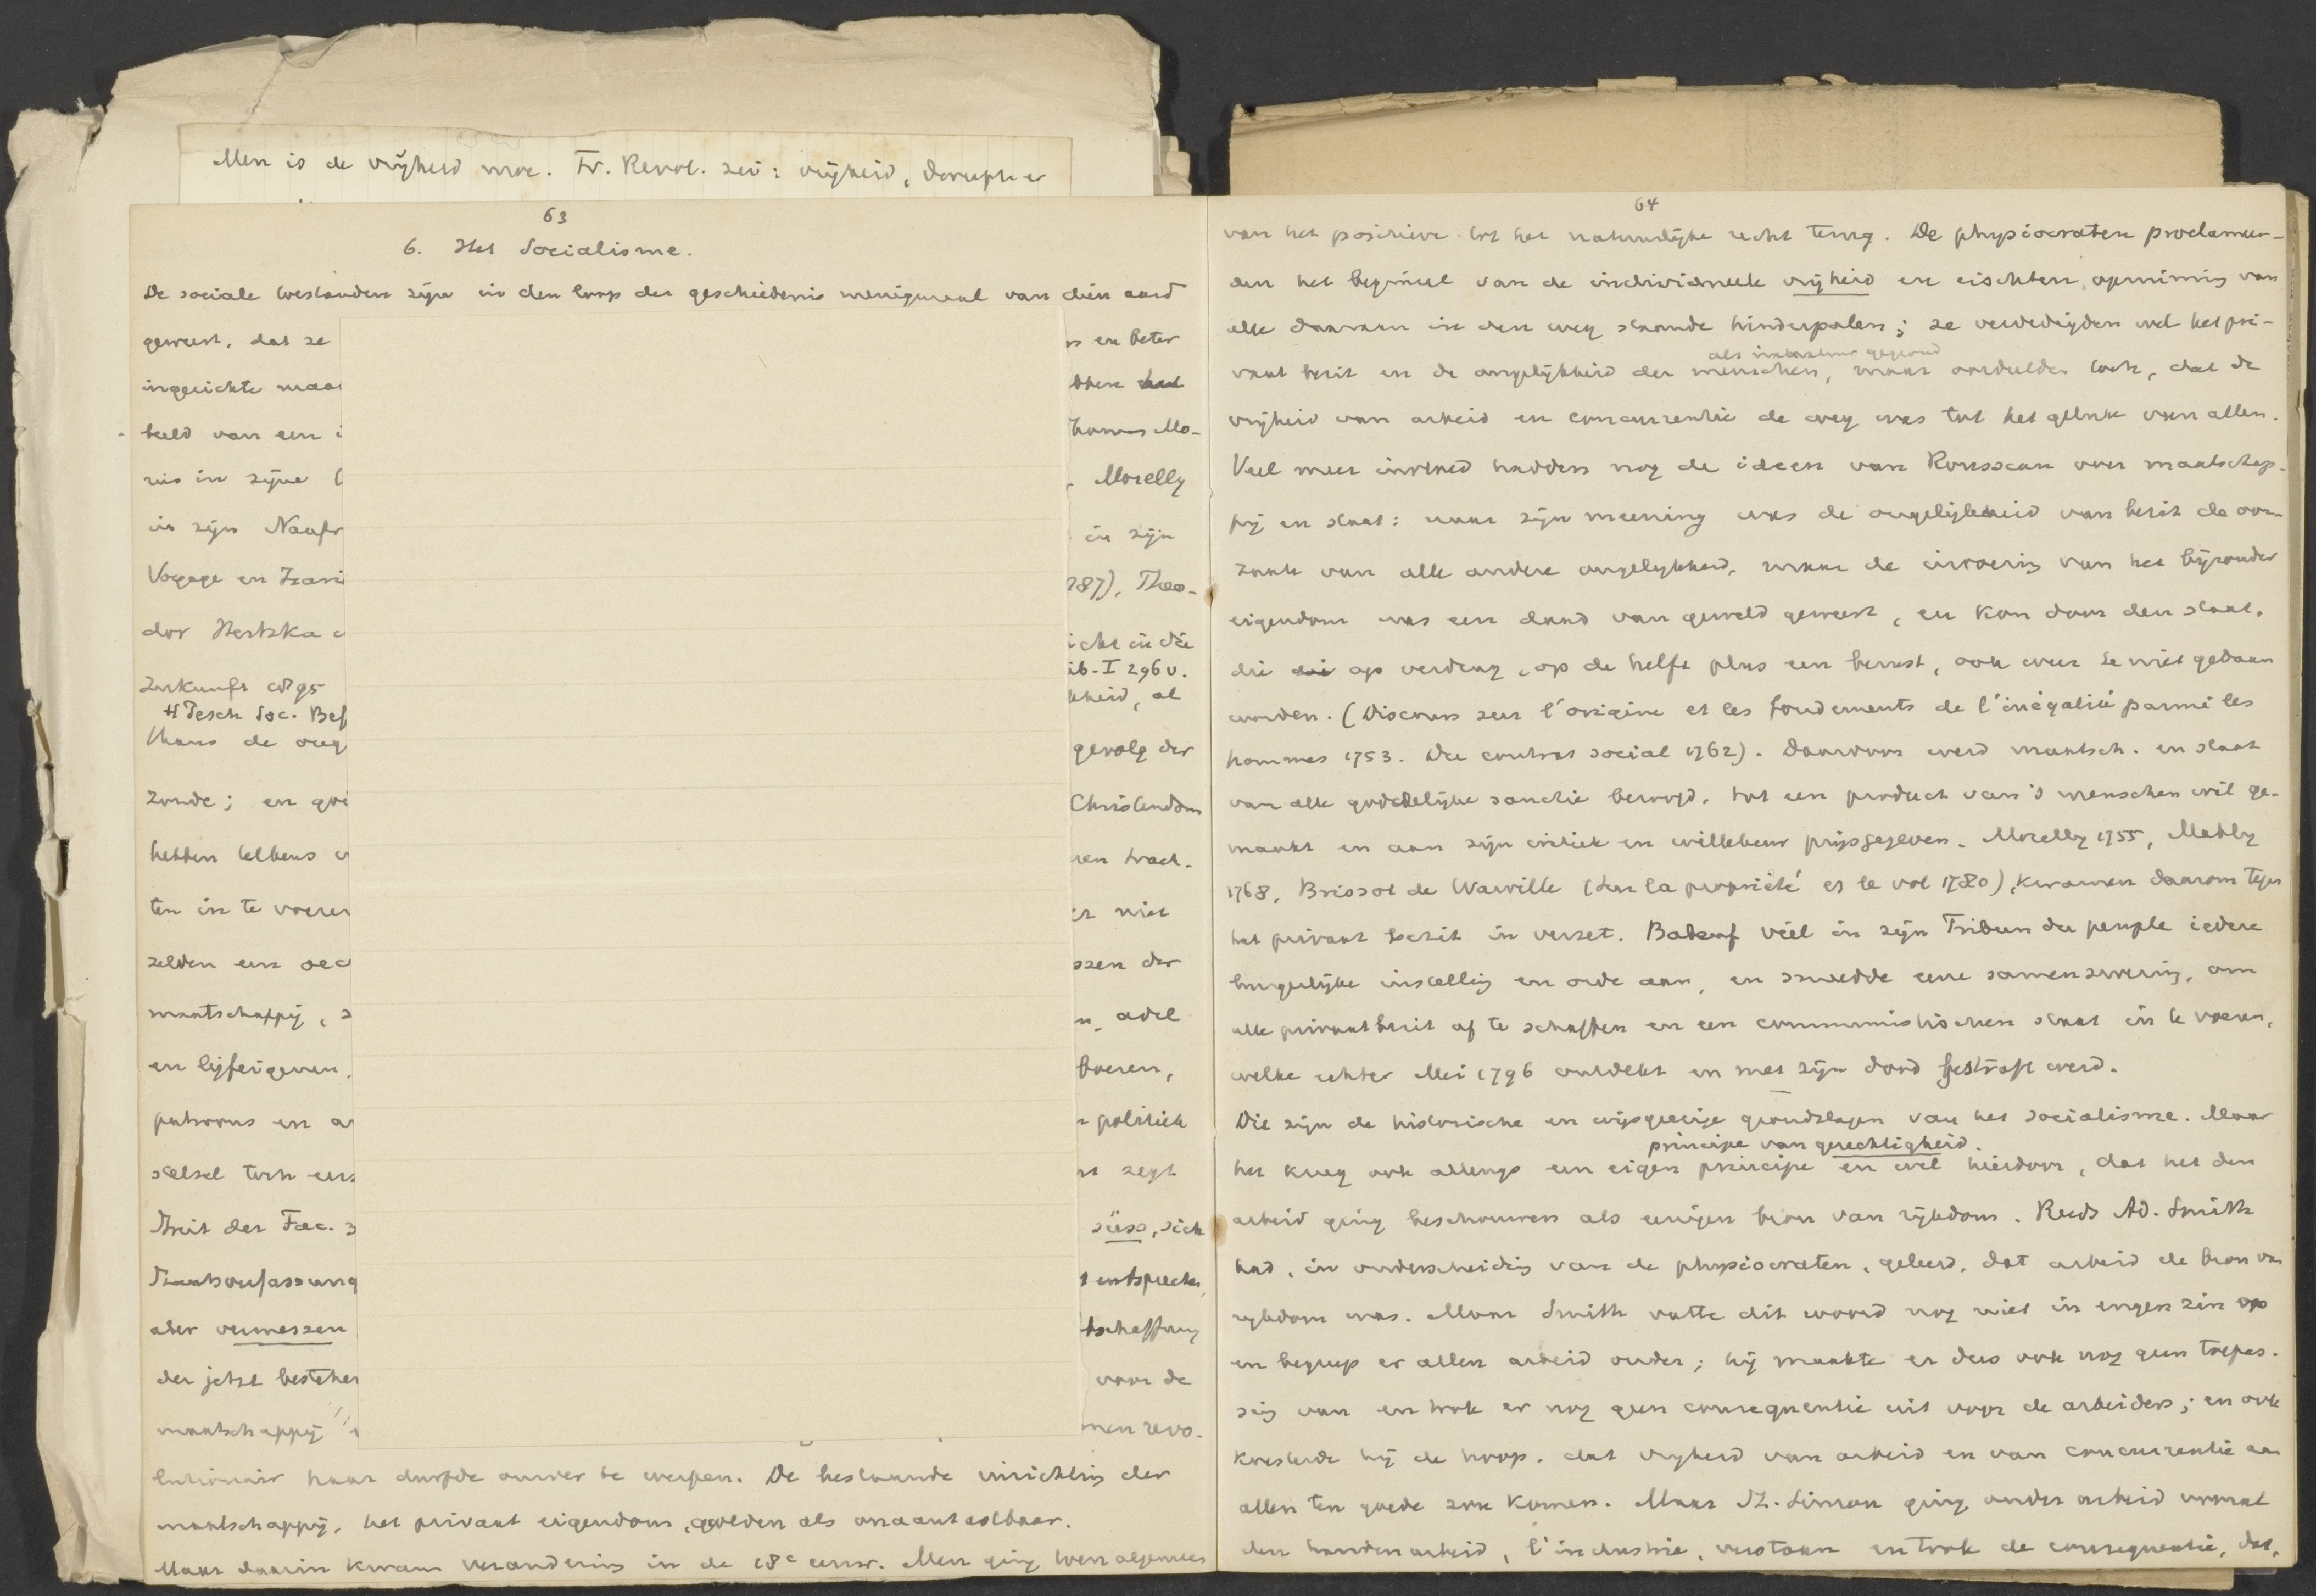 Men is de vrijheid moe. Fr. Revol. zei: vrijheid,
63
6. Het Socialisme.
De sociale toestanden zijn in den loop der geschiedenis menigmaal van dien aard
geweest, dat ze
en beter
ingerichte maa
bben
beeld van een i
Thomas Mo-
rus in zijne
Morelly
in zijn Naufr
in zijn
Voyage en Icari
787), Theo-
dor Hertzka
icht in die
Zukunft 1895
ib. I 296 v.
H Pesch Soc. Bef
kheid, al
thans de ong
gevolg der
zonde; en
Christendom
hebben telkens
en trach-
ten in te voeren
niet
zelden een oec
ssen der
maatschappij,
adel
en lijfeigenen,
boeren,
patroons en a
politiek
stelsel toch
zegt
Treit der Fac. 3
süss, sich
Staatsverfassung
entsprechen,
aber vermessen
tschaffung
der jetzt bestehen
voor de
maatschappij
men revo-
lutionair haar durfde omver te werpen. De bestaande inrichting der
maatschappij, het privaat eigendom, golden als onaantastbaar.
Maar daarin kwam verandering in de 18e eeuw. Men ging toen algemeen
64
van het positieve tot het natuurlijke recht terug. De physiocraten proclameer-
den het beginsel van de individueele vrijheid en eischten opruiming van
alle daaraan in den weg staande hinderpalen; ze verdedigden wel het pri-
als natuur gegrond
vaat bezit en de ongelijkheid der menschen, maar oordeelden toch, dat de
vrijheid van arbeid en concurrentie de weg was tot het geluk van allen.
Veel meer invloed hadden nog de ideen van Rousseau over maatschap-
pij en staat: naar zijn meening was de ongelijkheid van bezit de oor-
zaak van alle andere ongelijkheid, maar de invoering van het bijzonder
eigendom was een daad van geweld geweest, en kon door den staat,
die op verdrag, op de helft plus een berust, ook weer te niet gedaan
worden. (Discours sur l'origine et les fondements de l'inégalité parmi les
hommes 1753. Du contrat social 1762). Daardoor werd maatsch. en staat
van alle goddelijke sanctie beroofd, tot een product van 's menschen wil ge-
maakt en aan zijn critiek en willekeur prijsgegeven. Morelly 1755, Mably
1768, Brissot de Warville (Sur la propriété et le vol 1780), kwamen daarom tegen
het privaat bezit in verzet. Babeuf viel in zijn Tribun du peuple iedere
burgerlijke instelling en orde aan, en smeedde eene samenzwering, om
alle privaatbezit af te schaffen en een communistischen staat in te voeren,
welke echter Mei 1796 ontdekt en met zijn dood gestraft werd.
Dit zijn de historische en wijsgeerige grondslagen van het socialisme. Maar
principe van gerechtigheid.
het kreeg ook allengs een eigen principe en wel hierdoor, dat het den
arbeid ging beschouwen als eenigen bron van rijkdom. Reeds Ad. Smith
had, in onderscheiding van de physiocraten, geleerd, dat arbeid de bron van
rijkdom was. Maar Smith vatte dit woord nog niet in engen zin op
en begreep er allen arbeid onder; hij maakte er dus ook nog geen toepas-
sing van en trok er nog geen consequentie uit voor de arbeiders; en ook
koesterde hij de hoop, dat vrijheid van arbeid en van concurrentie aan
allen ten goede zou komen. Maar St. Simon ging onder arbeid vooral
den handenarbeid, l'industrie, verstaan en trok de consequentie, dat,